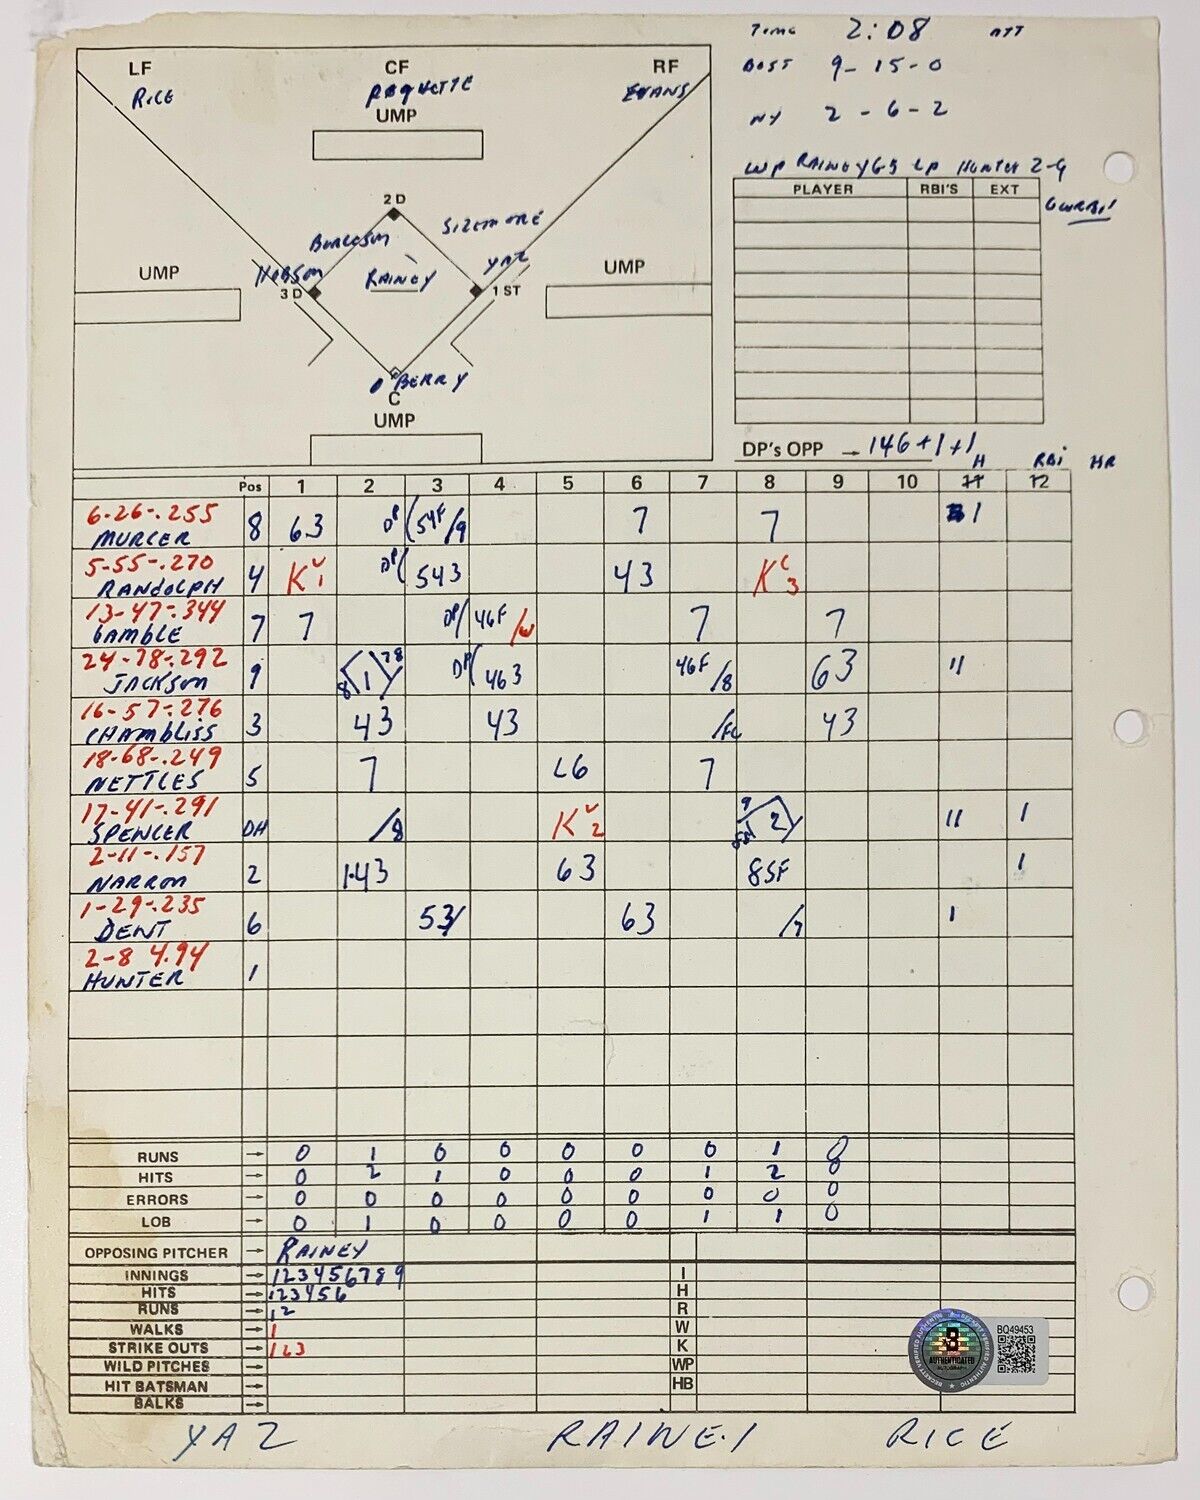 TIME 2:08 ATT
BOST 9-15-0
NY 2-6-2
WP RAINEY 6-5 LP HUNTER 2-9
GWRBI
LF CF RF
RICE EVANS
UMP
2 D
BURLESON SIZEMORE
HOBSON RAINEY YAZ
UMP UMP
3 D 1 ST
O BERRY
C
UMP
PLAYER RBI'S EXT
DP's OPP → 146+1+1
H RBI HR
Pos 1 2 3 4 5 6 7 8 9 10 11 12
6-26-.255
MURCER 8 63 DP 54F/9 7 7 1
5-55-.270
RANDOLPH 4 K 1 DP 543 43 K C 3
13-47-.344
GAMBLE 7 7 DP 46F/W 7 7
24-78-.292
JACKSON 9 8 1 78 DP 463 46F/8 63 11
16-57-.276
CHAMBLISS 3 43 43 /FC 43
18-68-.249
NETTLES 5 7 L6 7
17-41-.291
SPENCER DH /8 K 2 9 2 11 1
2-11-.157
NARRON 2 1-43 63 8SF 1
1-29-.235
DENT 6 53/ 63 /7 1
2-8 4.94
HUNTER 1
RUNS → 0 1 0 0 0 0 0 1 0
HITS → 0 2 1 0 0 0 1 2 0
ERRORS → 0 0 0 0 0 0 0 0 0
LOB → 0 1 0 0 0 0 1 1 0
OPPOSING PITCHER → RAINEY
INNINGS → 123456789 I
HITS → 123456 H
RUNS → 12 R
WALKS → 1 W
STRIKE OUTS → 123 K
WILD PITCHES → WP
HIT BATSMAN → HB
BALKS →
B
AUTHENTICATED
AUTOGRAPH
BQ49453
YAZ RAINEY RICE